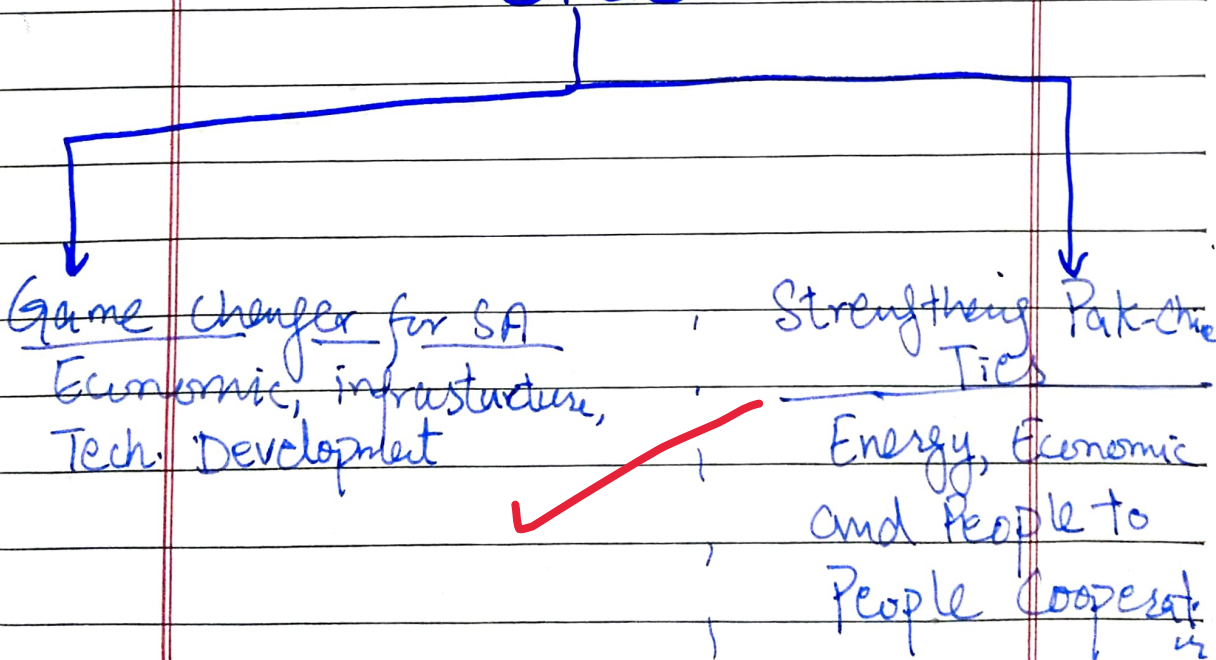 Game Changer for SA
Economic, infrasturcture,
Tech. Development
Strengthening Pak-Chi
Ties
Energy, Economic
and People to
People Cooperat